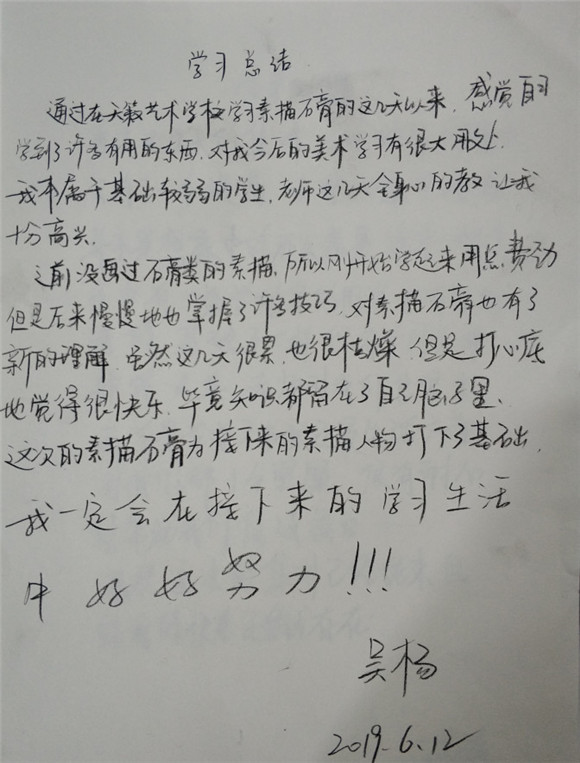 学习总结
通过在天籁艺术学校学习素描石膏的这几天以来，感觉自己
学到了许多有用的东西，对我今后的美术学习有很大用处。
我本属于基础较弱的学生，老师这几天全身心的教让我
十分高兴。
之前没画过石膏类的素描，所以刚开始学起来用点费劲
但是后来慢慢地也掌握了许多技巧，对素描石膏也有了
新的理解，虽然这几天很累，也很枯燥，但是打心底
地觉得很快乐，毕竟知识都留在了自己脑子里、
这次的素描石膏为接下来的素描人物打下了基础，
我一定会在接下来的学习生活
中好好努力!!!
吴杨
2019.6.12